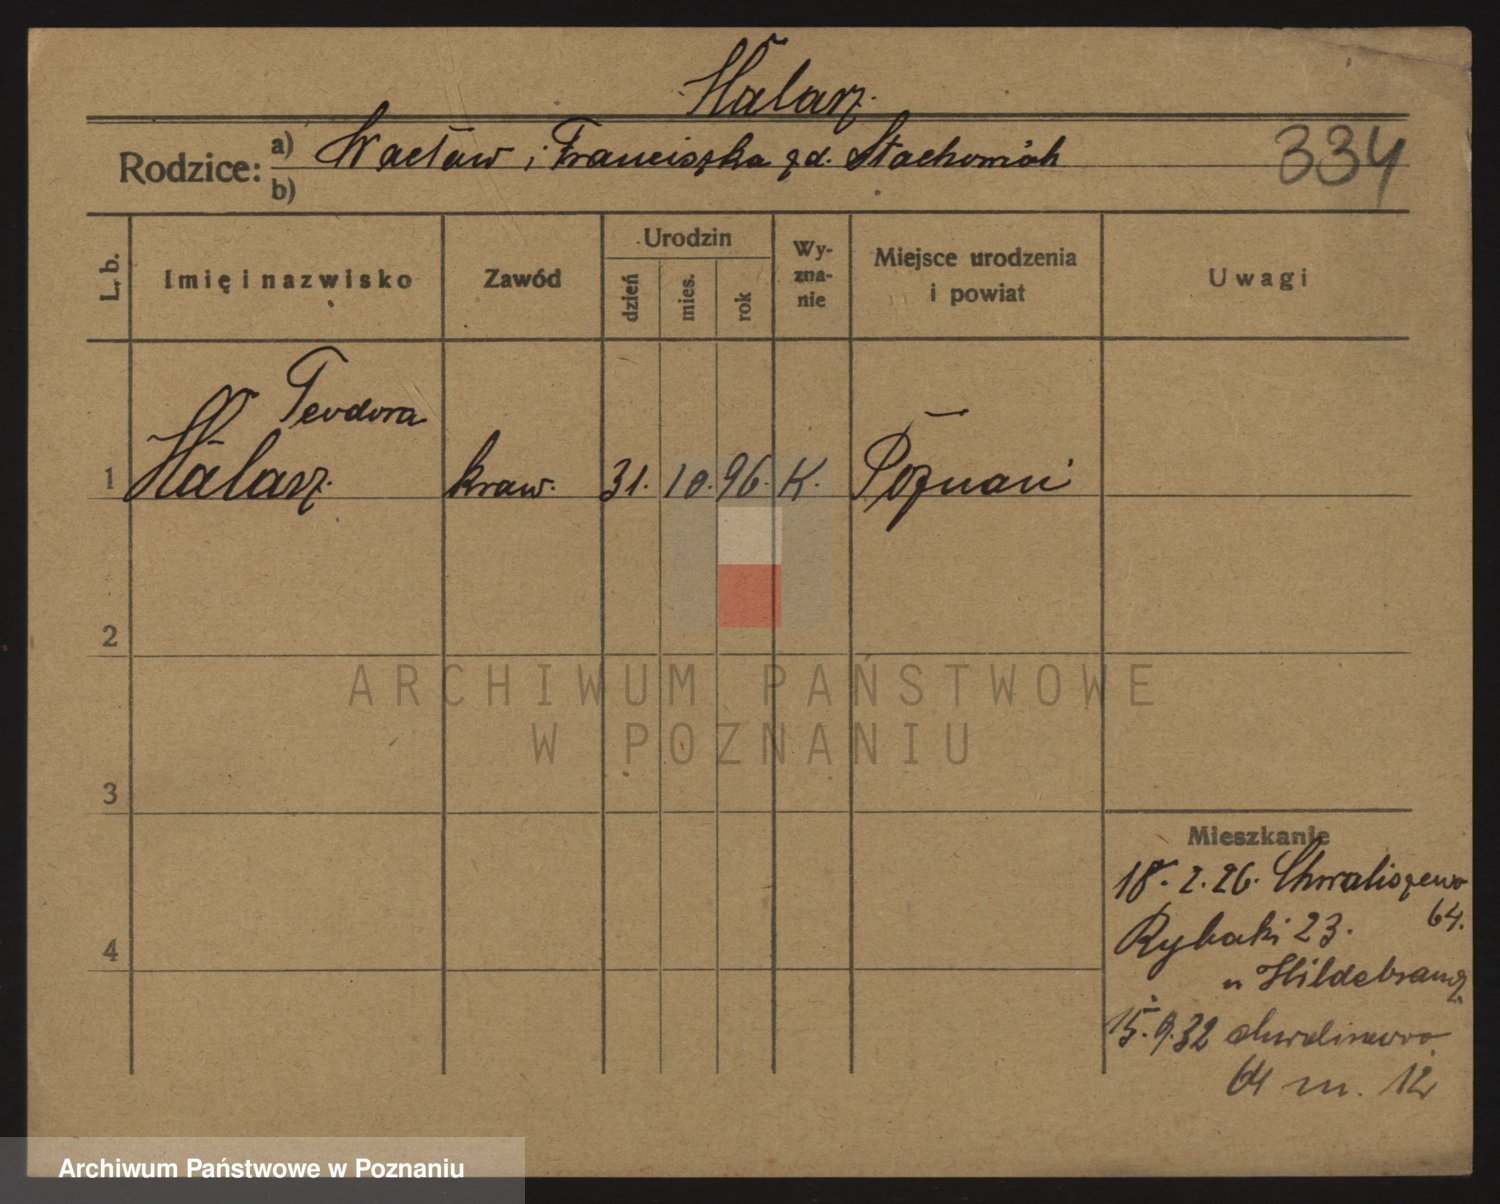 Halasz.
Rodzice: a) Wacław i Franciszka zd. Stachowiak
b)
334
L. b.
Imię i nazwisko
Zawód
Urodzin
dzień
mies.
rok
Wy-
zna-
nie
Miejsce urodzenia
i powiat
Uwagi
Teodora
1 Halasz. kraw. 31. 10. 96. K. Poznań
2
3
4
Mieszkanie
18. 2. 26. Chwaliszewo
64.
Rybaki 23.
u Hildebrand
15. 9. 32 Chwaliszewo
64 m. 12
ARCHIWUM PAŃSTWOWE
W POZNANIU
Archiwum Państwowe w Poznaniu